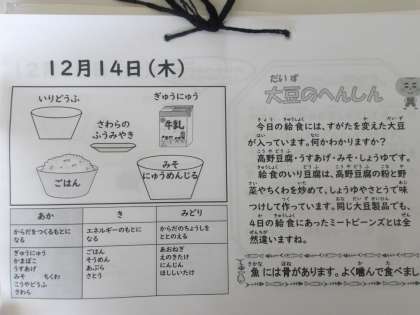 12月14日(木)
いりどうふ
ぎゅうにゅう
さわらの
ふうみやき
牛乳
ごはん
みそ
にゅうめんじる
あか
き
みどり
からだをつくるもとに
なる
エネルギーのもとに
なる
からだのちょうしを
ととのえる
ぎゅうにゅう
かまぼこ
うすあげ
みそ ちくわ
こうやどうふ
さわら
ごはん
そうめん
あぶら
さとう
あおねぎ
えのきたけ
にんじん
ほししいたけ
だいず
大豆のへんしん
今日の給食には、すがたを変えた大豆
が入っています。何かわかりますか?
高野豆腐・うすあげ・みそ・しょうゆです。
給食のいり豆腐は、高野豆腐の粉と野
菜やちくわを炒めて、しょうゆやさとうで味
つけして作っています。同じ大豆製品でも、
4日の給食にあったミートビーンズとは全
然違いますね。
魚には骨があります。よく噛んで食べまし